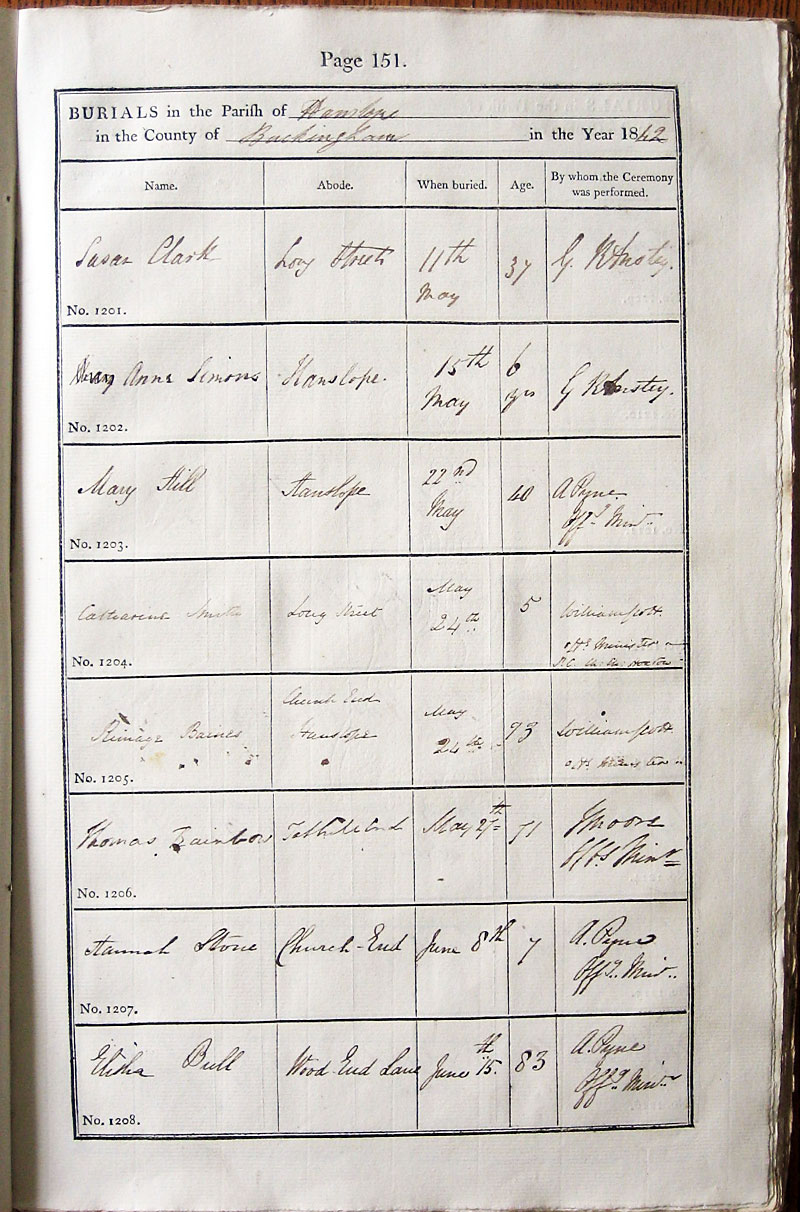 Page 151.
BURIALS in the Parish of Hanslope
in the County of Buckingham in the Year 1842
Name. Abode. When buried. Age. By whom the Ceremony was performed.
Susan Clark Long Street 11th May 37 G. R Anstey.
No. 1201.
Mary Anne Simons Hanslope. 15th May 6 yrs G R Anstey.
No. 1202.
Mary Hill Hanslope 22nd May 40 A Pyne Offg Minr
No. 1203.
Catharine Long Street May 24th 5 William Scott offg Minister
No. 1204.
Barnes Church End Hanslope May 24th 93 William Scott offg Minister
No. 1205.
Thomas Rainbow May 27th 71 Moore Offg Minr
No. 1206.
Hannah Stone Church-End June 8th 7 A. Pyne Offg. Minr.
No. 1207.
Elisha Bull Wood-End Lane June 15th. 83 A. Pyne Offg Minr
No. 1208.